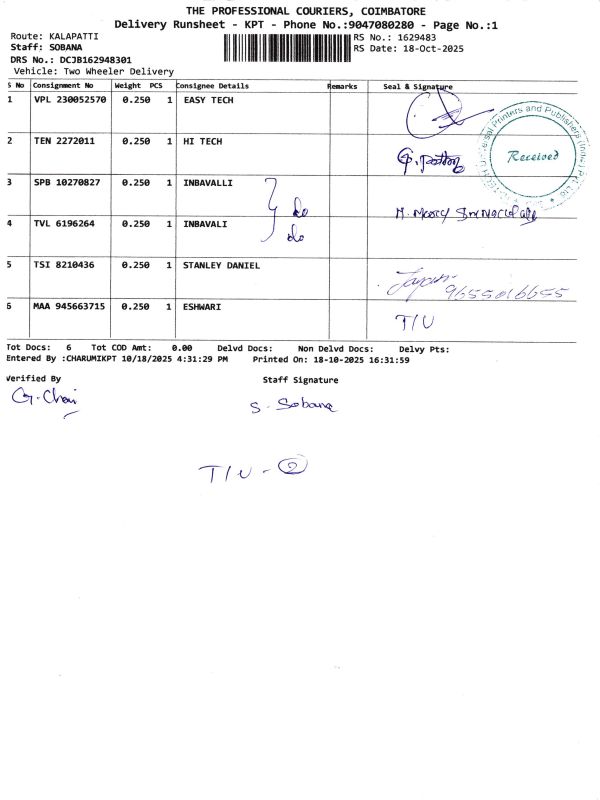 THE PROFESSIONAL COURIERS, COIMBATORE
Delivery Runsheet - KPT - Phone No.:9047080280 - Page No.:1
Route: KALAPATTI RS No.: 1629483
Staff: SOBANA RS Date: 18-Oct-2025
DRS No.: DCJB162948301
Vehicle: Two Wheeler Delivery
S No Consignment No Weight PCS Consignee Details Remarks Seal & Signature
1 VPL 230052570 0.250 1 EASY TECH
2 TEN 2272011 0.250 1 HI TECH
Received
3 SPB 10270827 0.250 1 INBAVALLI do
4 TVL 6196264 0.250 1 INBAVALI do
5 TSI 8210436 0.250 1 STANLEY DANIEL
9655016655
6 MAA 945663715 0.250 1 ESHWARI T/U
Tot Docs: 6 Tot COD Amt: 0.00 Delvd Docs: Non Delvd Docs: Delvy Pts:
Entered By :CHARUMIKPT 10/18/2025 4:31:29 PM Printed On: 18-10-2025 16:31:59
Verified By Staff Signature
S. Sobana
T/U - 2